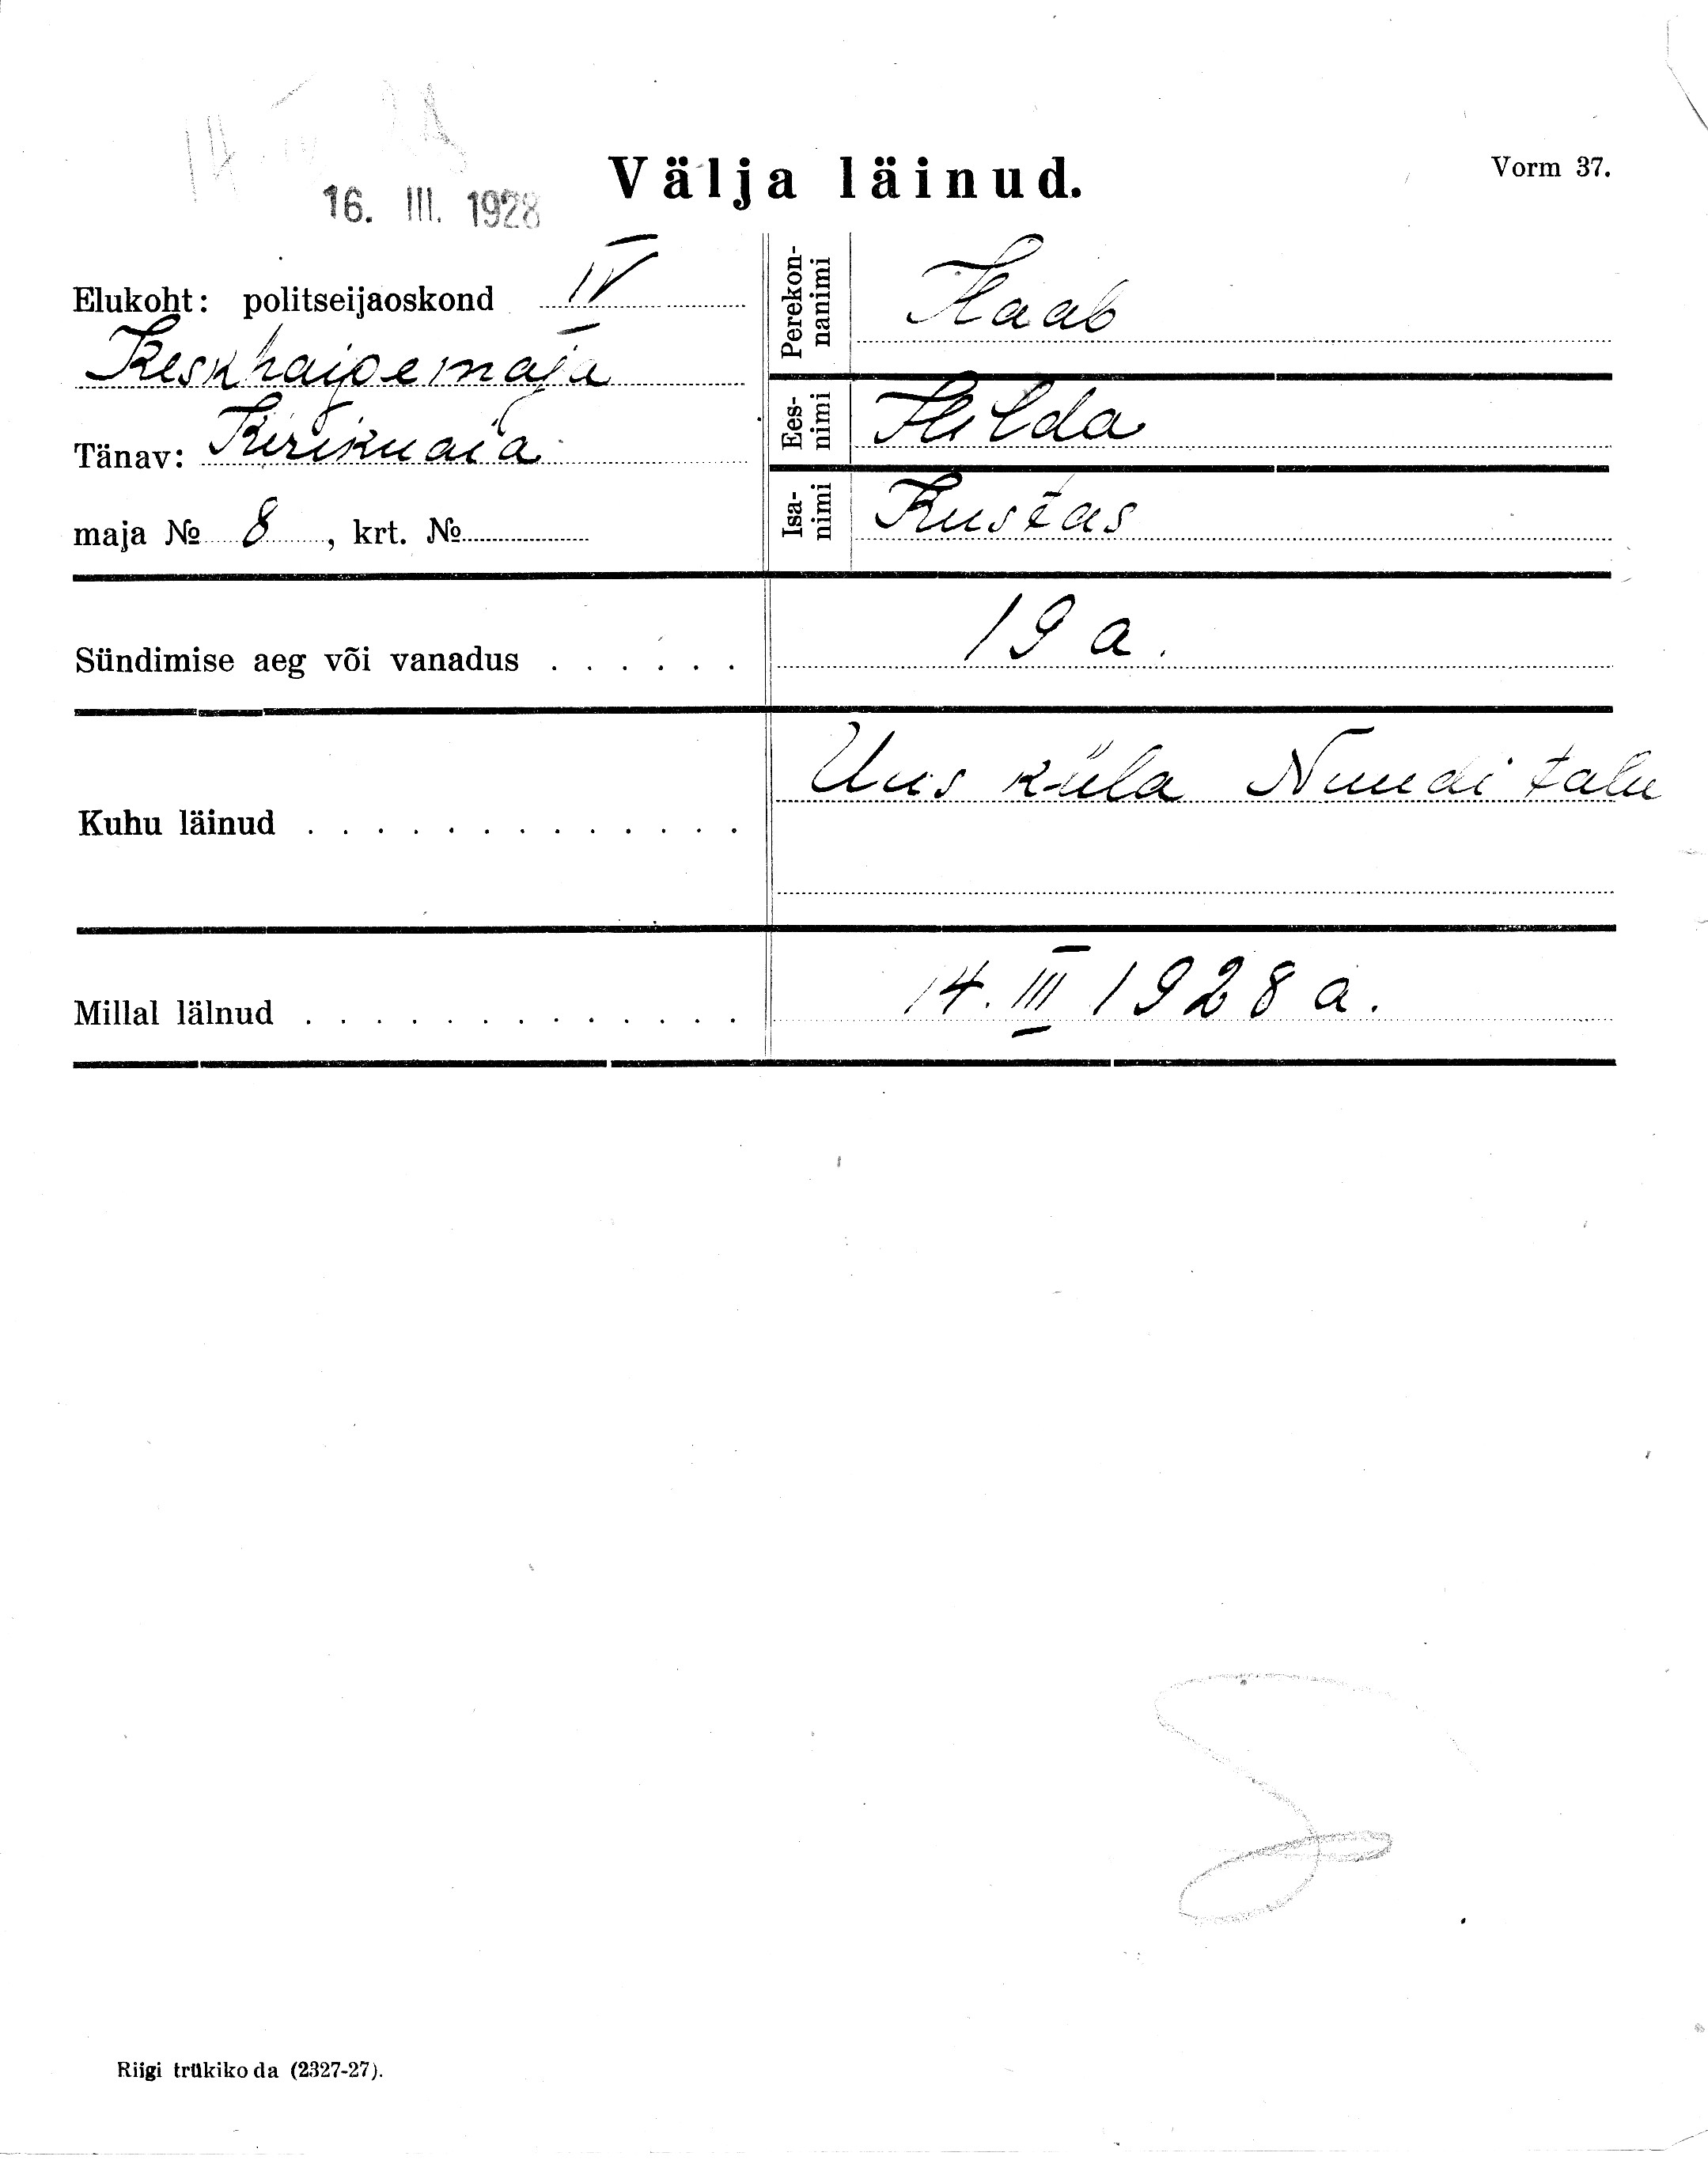 14. III 28
Välja läinud.
Vorm 37.
16. III. 1928
Elukoht: politseijaoskond IV
Keskhaigemaja
Tänav: Kirikuaia
maja № 8, krt. №
Perekon-
nanimi
Haab
Ees-
nimi
Hilda
Isa-
nimi
Kustas
Sündimise aeg või vanadus . . . . . .
19 a.
Kuhu läinud . . . . . . . . . . . . .
Uus küla Nuudi talu
Millal lälnud . . . . . . . . . . . . .
14. III 1928 a.
Riigi trükikoda (2327-27).